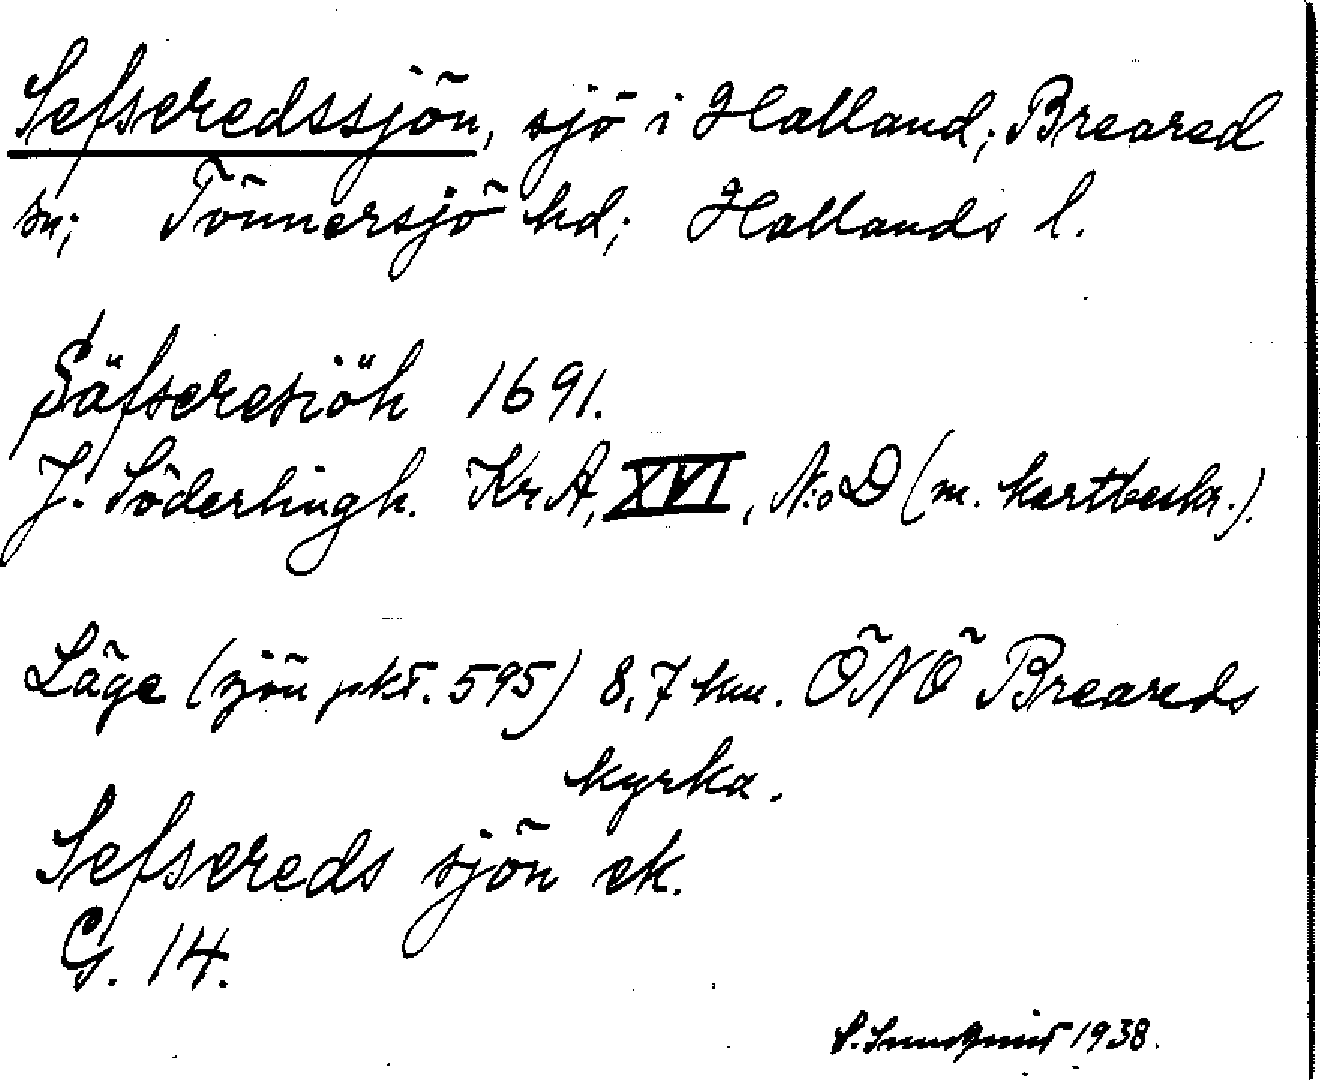 Sefseredssjön, sjö i Halland; Breared
sn; Tönnersjö hd; Hallands l.
Säfseresiöh 1691.
J. Söderlingh. KrA, XVI, N:o D (m. kartbeskr.).
Läge (sjön pkt. 595) 8,7 km. ÖNÖ Breareds
kyrka.
Sefsereds sjön ek.
G. 14.
S. Sundquist 1938.